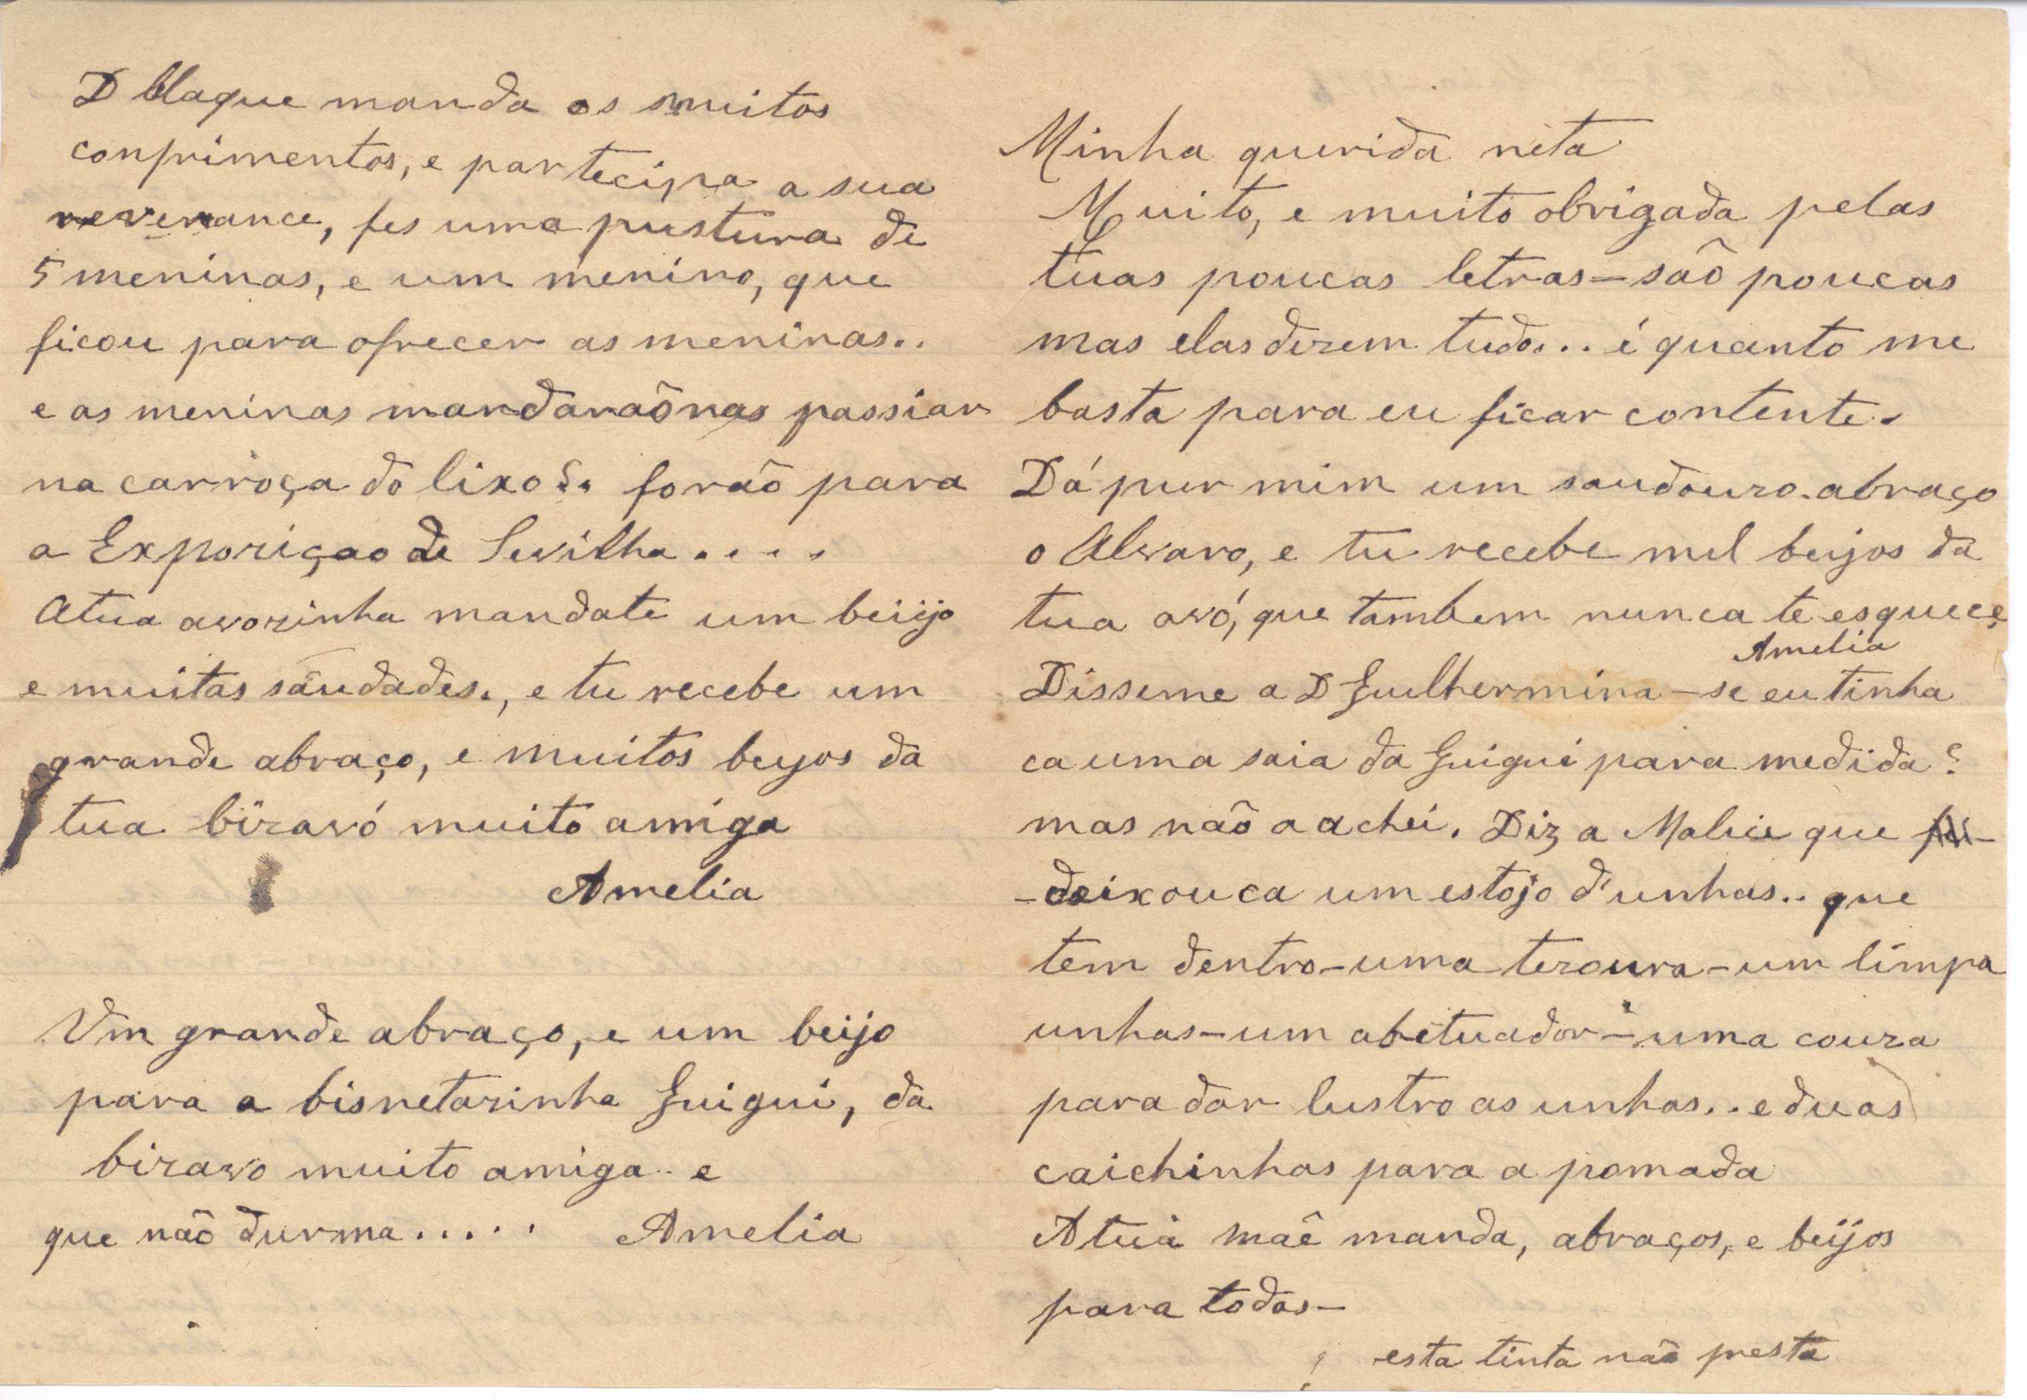 D blaque manda os muitos
conprimentos, e partecipa a sua
reverance, fes uma pustura de
5 meninas, e um menino, que
ficou para ofrecer as meninas..
e as meninas mandaraõnas passiar
na carroça do lixo?. foraõ para
a Expoziçao de Sevilha....
Atua avozinha mandate um beiijo
e muitas saudades., e tu recebe um
grande abraço, e muitos beyos da
tua bizavó muito amiga
Amelia
Um grande abraço, e um beijo
para a bisnetazinha Guigui, da
bizavo muito amiga.. e
que naõ durma.....     Amelia
Minha querida neta
Muito, e muito obrigada pelas
tuas poucas letras—saõ poucas
mas elas dizem tudo... é quanto me
basta para eu ficar contente.
Dá pur mim um saudouzo.abraço
o Alvaro, e tu recebe mil beijos da
tua avó, que tambem nunca te esquece
Amelia
Disseme a D Guilhermina—se eu tinha
ca uma saia da Guigui para medida?
mas naõ a achei. Diz a que
-deixou ca um estojo d'unhas.. que
tem dentro—uma tezoura—um limpa
unhas—um abetuador—uma couza
para dar lustro as unhas.. e duas
caichinhas para a pomada
A tua maê manda, abraços, e beijos
para todos—
esta tinta naõ presta